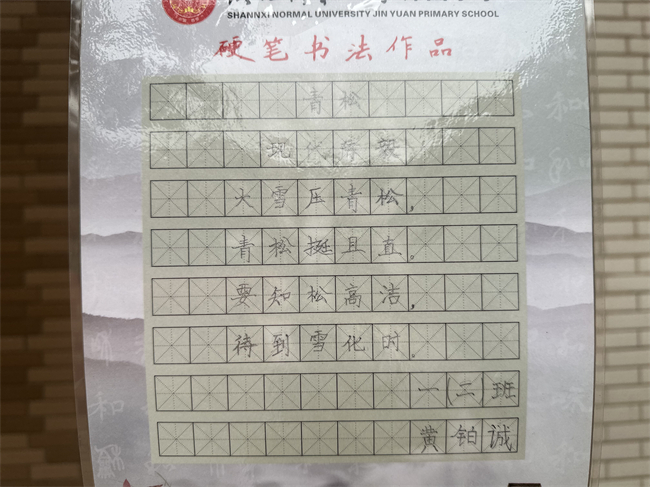 SHANNXI NORMAL UNIVERSITY JIN YUAN PRIMARY SCHOOL
硬笔书法作品
青松
现代陈毅
大雪压青松，
青松挺且直。
要知松高洁，
待到雪化时。
一(二)班
黄铂诚